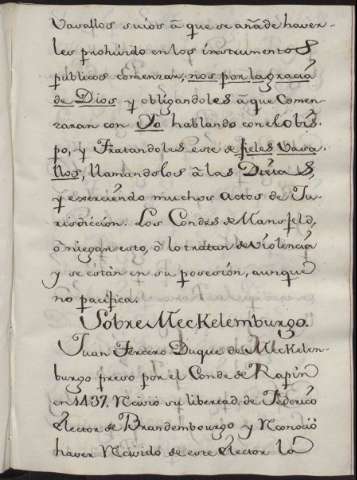 Vasallos suios à que se añade haver-
les prohivido en los instrumentos
publicos comenzar, nos por la gracia
de Dios y obligandoles à que comen-
zaran con Yo hablando con el obis-
po, y tratandoles este de fieles Vasa-
llos, llamandolos à las Dietas,
y exerciendo muchos actos de Ju-
risdiccion. Los Condes de Mansfeld,
ò niegan esto, ò lo tratan de violencia
y se están en su posesión, aunque
no pacifica.
Sobre Meckelemburgo.
Juan Tercero Duque de Meckelem-
burgo preso por el Conde de Rapin
en 1437. Recivió su libertad de Federico
Elector de Brandembourgo y Reconoció
haver Recivido de este Elector la